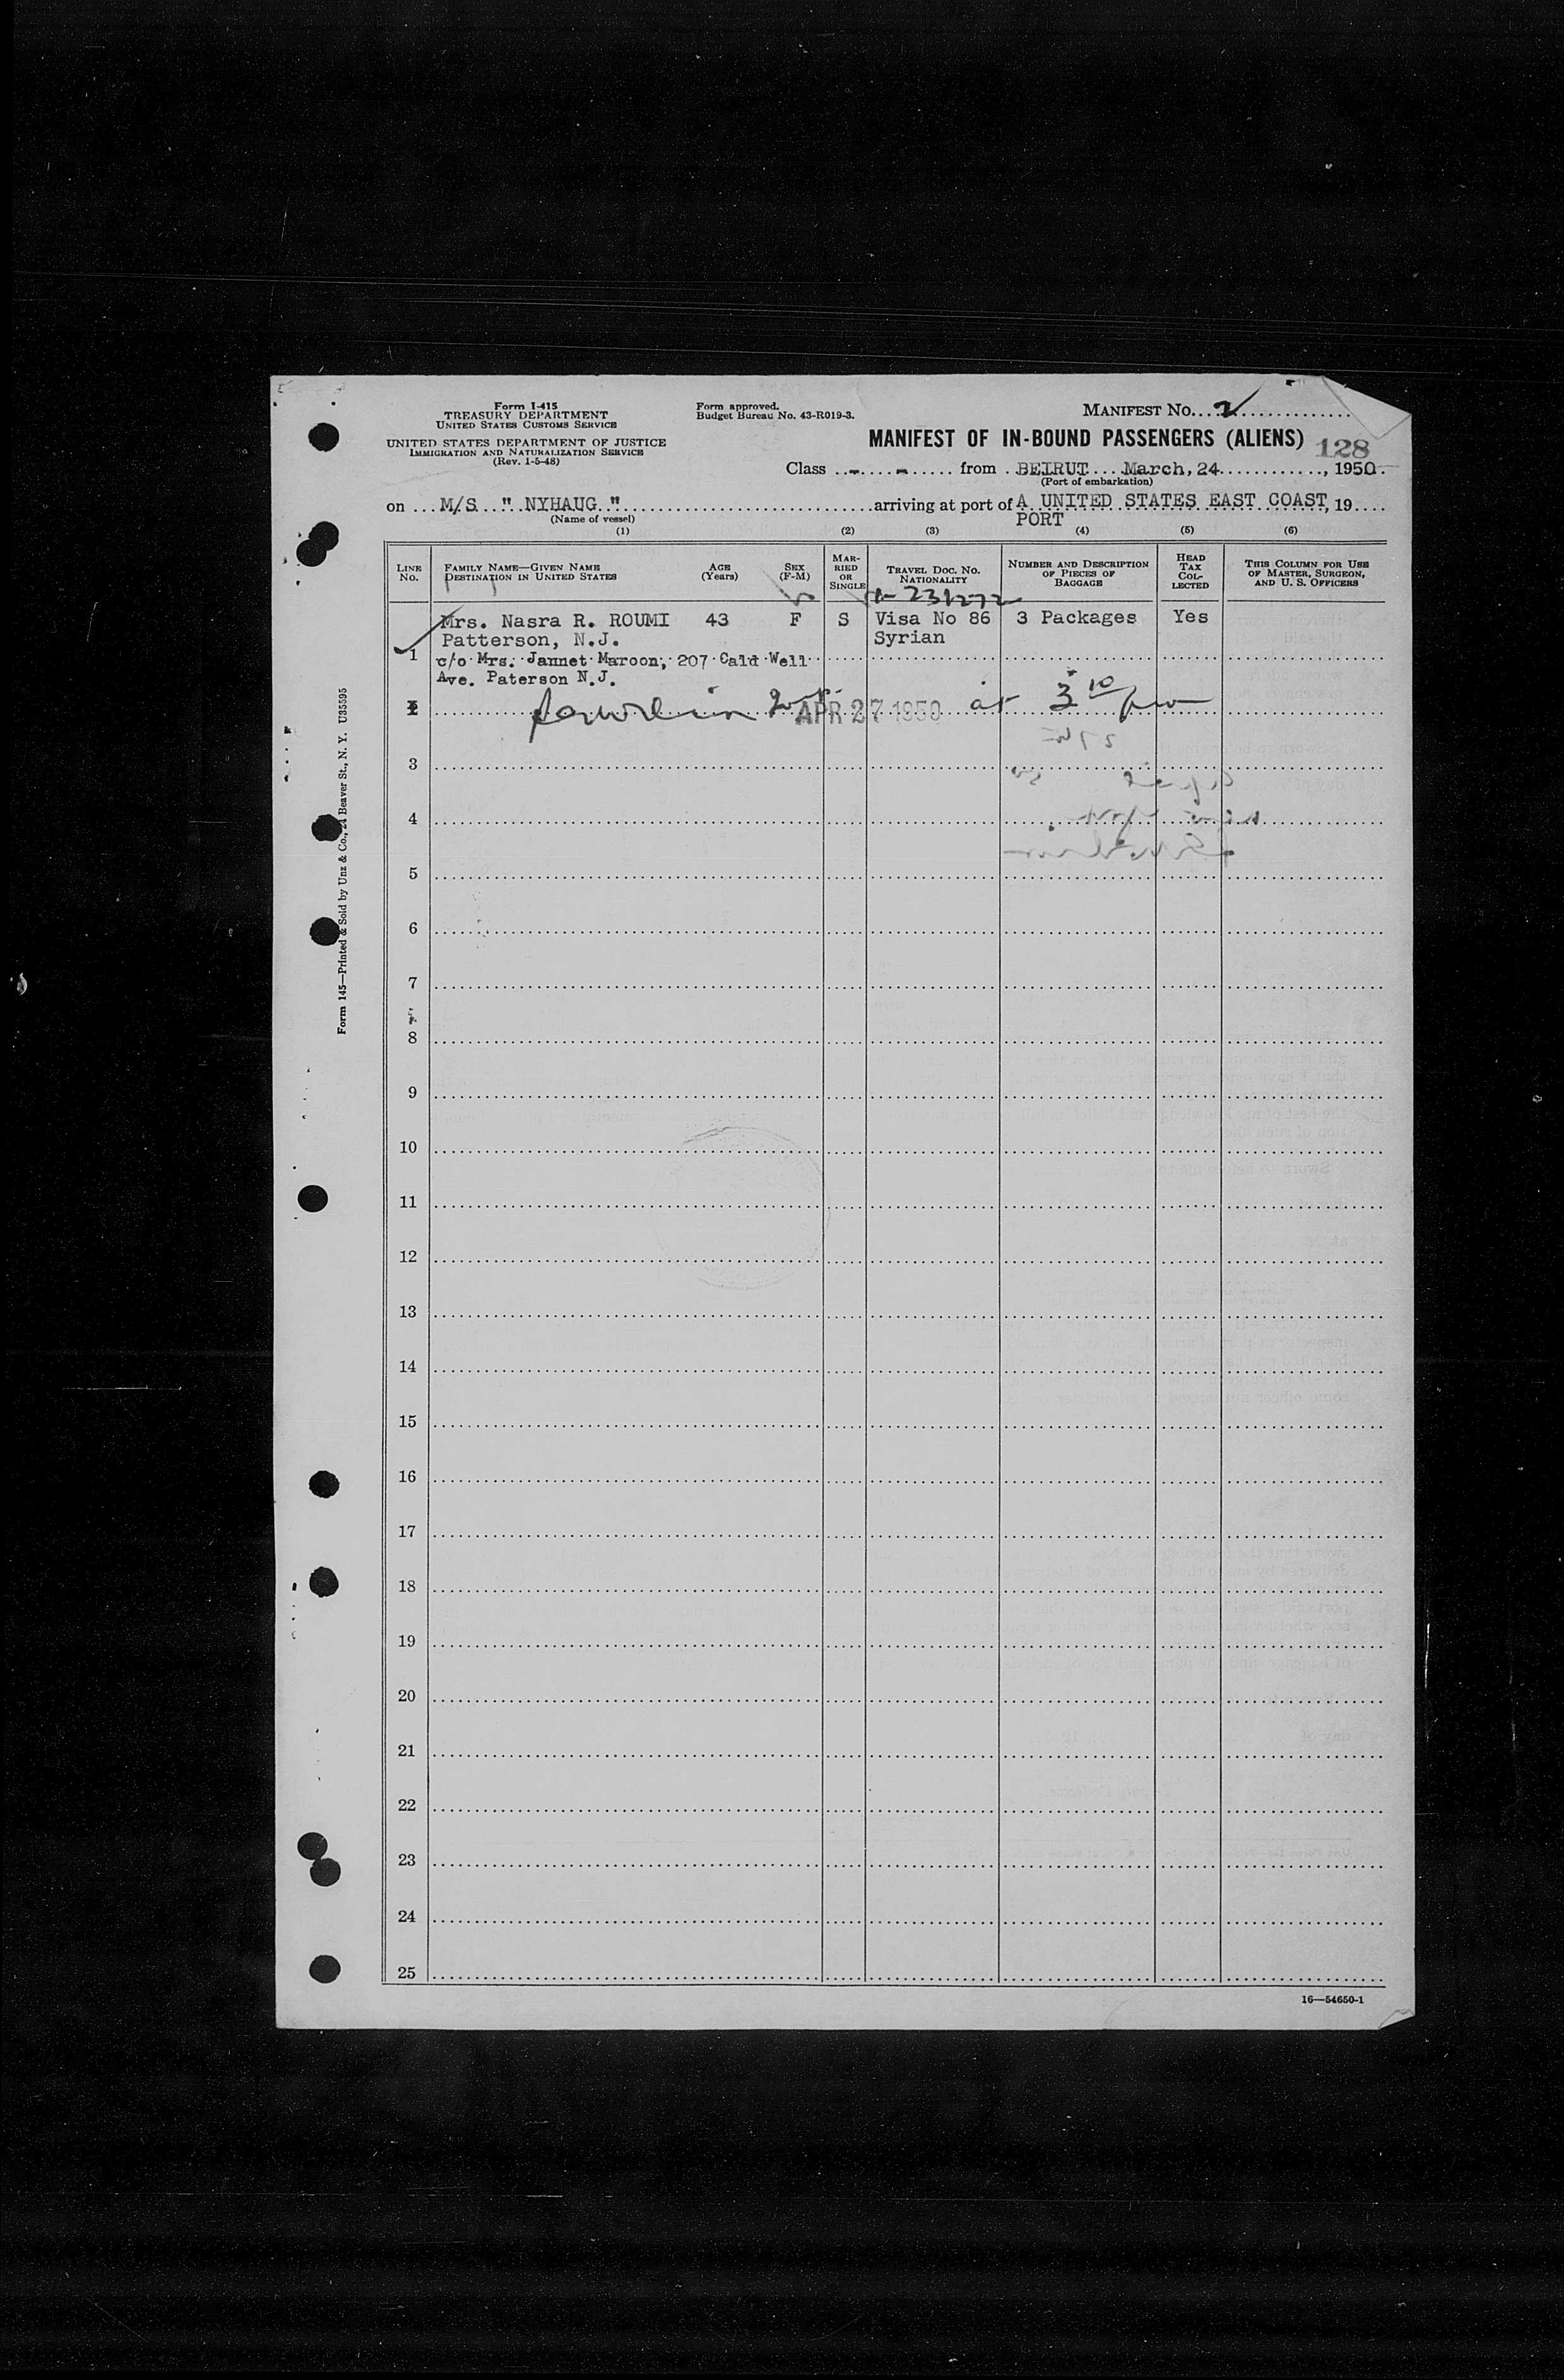 Form I-415
TREASURY DEPARTMENT
UNITED STATES CUSTOMS SERVICE
UNITED STATES DEPARTMENT OF JUSTICE
IMMIGRATION AND NATURALIZATION SERVICE
(Rev. 1-5-48)
Form approved.
Budget Bureau No. 43-R019-3.
MANIFEST No. 2
MANIFEST OF IN-BOUND PASSENGERS (ALIENS)
128
Class - - from BEIRUT March, 24, 1950.
(Port of embarkation)
on M/S " NYHAUG " arriving at port of A UNITED STATES EAST COAST, 19
PORT
(Name of vessel)
(1) (2) (3) (4) (5) (6)
LINE No.
FAMILY NAME—GIVEN NAME
DESTINATION IN UNITED STATES
AGE (Years)
SEX (F-M)
MARRIED OR SINGLE
TRAVEL DOC. NO.
NATIONALITY
NUMBER AND DESCRIPTION OF PIECES OF BAGGAGE
HEAD TAX COLLECTED
THIS COLUMN FOR USE OF MASTER, SURGEON, AND U. S. OFFICERS
231272
Mrs. Nasra R. ROUMI 43 F S Visa No 86 3 Packages Yes
Patterson, N.J. Syrian
1 c/o Mrs. Jannet Maroon, 207 Cald Well
Ave. Paterson N.J.
2 APR 27 1950 at 3 10 pm
3
4
5
6
7
8
9
10
11
12
13
14
15
16
17
18
19
20
21
22
23
24
25
16—54650-1
Form 145—Printed & Sold by Unz & Co., 24 Beaver St., N. Y. U35595